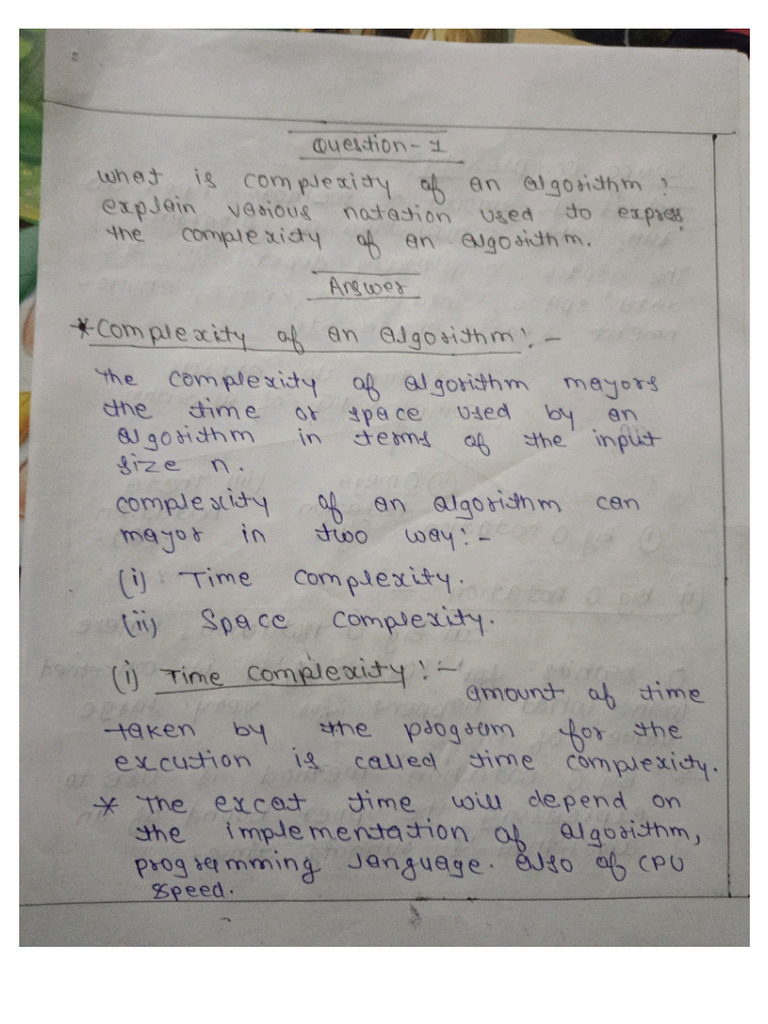 Question-1
what is complexity of an algorithm?
explain various notation used to express
the complexity of an algorithm.
Answer
*complexity of an algorithm:-
The complexity of algorithm mayors
the time or space used by an
algorithm in terms of the input
size n.
complexity of an algorithm can
mayor in two way:-
(i) Time complexity.
(ii) Space complexity.
(i) Time complexity:-
amount of time
taken by the program for the
excution is called time complexity.
* The excat time will depend on
the implementation of algorithm,
programming language. also of CPU
speed.